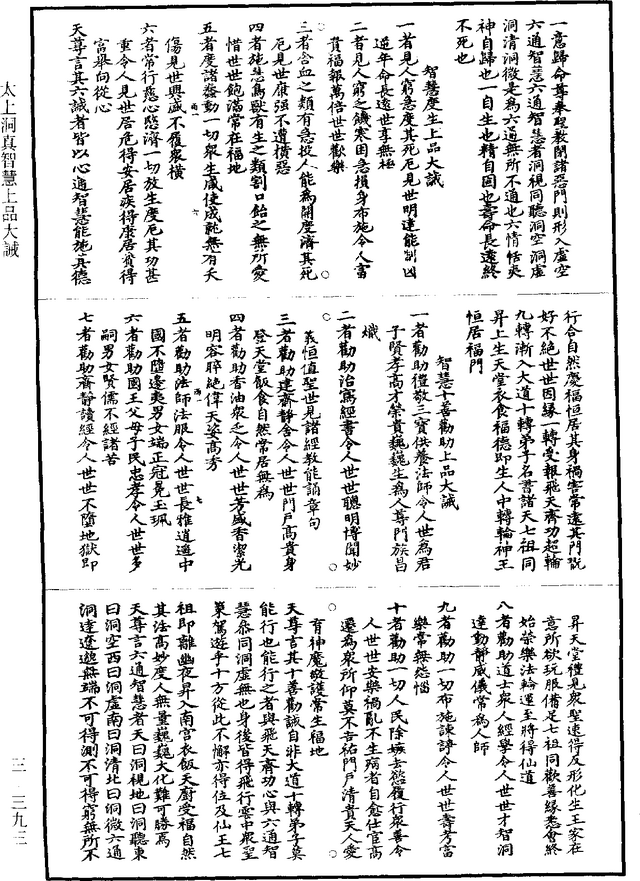 一意歸命尊奉聖教閉諸惡門則形入虛空
六通智慧六通智慧者洞視洞聽洞空洞虛
洞清洞微是為六通無所不通也六情恬夾
神自歸也一自生也精自固也壽命長遠終
不死也
智慧度生上品大誡
一者見人窮急度其死厄見世明達能制凶
逆年命長遠世享無極
二者見人窮乏饑寒困急損身布施令人富
貴福報萬倍世世歡樂
三者含血之類有急投人能為開度濟其死
厄見世康強不遭橫惡
四者施惠鳥獸有生之類割口飴之無所愛
惜世世飽滿常在福地
五者度諸蠢動一切眾生咸使成就無有夭
傷見世興盛不履眾橫
六者常行慈心愍濟一切放生度厄其功甚
重令人見世居危得安居疾得康居貧得
富舉向從心
天尊言其六誡者皆以心通智慧能施其德
行合自然慶福恒居其身禍害常遠其門既
好不絕世世因緣一轉受報飛天齊功超輪
九轉漸入大道十轉弟子名書諸天七祖同
昇上生天堂衣食福德即生人中轉輪神王
恒居福門
智慧十善勸助上品大誡
一者勸助禮敬三寶供養法師令人世為君
子賢孝高才榮貴巍巍生為人尊門族昌
熾
二者勸助治寫經書令人世世聰明博聞妙
義恒值聖世見諸經教能誦章句
三者勸助建齋靜舍令人世世門戶高貴身
登天堂飯食自然常居無為
四者勸助香油眾乏令人世世芳盛香潔光
明容睟絕偉天姿高秀
五者勸助法師法服令人世世長雅逍遙中
國不墮邊夷男女端正冠冕玉珮
六者勸助國王父母子民忠孝令人世世多
嗣男女賢儒不經諸苦
七者勸助齋靜讀經令人世世不墮地獄即
昇天堂禮見眾聖速得反形化生王家在
意所欲玩服備足七祖同歡善緣悉會終
始榮樂法輪運至將得仙道
八者勸助道士眾人經學令人世世才智洞
達動靜威儀常為人師
九者勸助一切布施諫諍令人世世壽考富
樂常無惱
十者勸助一切人民除嫉去慾履行眾善令
人世世安樂禍亂不生病者自愈仕官高
遷為眾所仰莫不吉祐門戶清貴天人愛
育神魔敬護常生福地
天尊言其十善勸誡自非大道十轉弟子莫
能行也能行之者與飛天齊功心與六通智
慧參同洞虛無也身後皆得飛行雲中眾聖
策駕遊乎十方從此不懈亦得位及仙王七
祖即離幽夜昇入南宮衣飯天廚受福自然
其法高妙度人無量巍巍大化難可勝焉
天尊言六通智慧者天曰洞視地曰洞聽東
曰洞空西曰洞虛南曰洞清北曰洞微六通
洞達遼邈無端不可得測不可得窮無所不
太上洞真智慧上品大誡
三-三九三